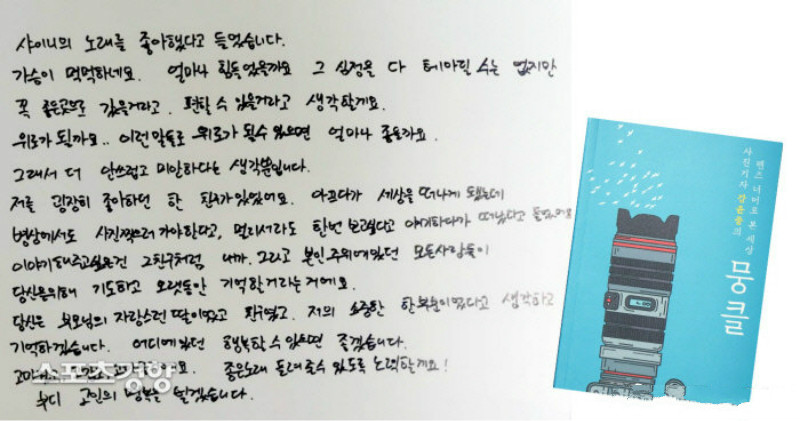 샤이니의 노래를 좋아했다고 들었습니다.
가슴이 먹먹하네요. 얼마나 힘들었을까요 그 심정을 다 헤아릴 수는 없지만
꼭 좋은곳으로 갔을거라고. 편할 수 있을거라고 생각할게요.
위로가 될까요.. 이런 말들로 위로가 될수 있으면 얼마나 좋을까요.
그래서 더 안쓰럽고 미안하다는 생각뿐입니다.
저를 굉장히 좋아하던 한 친구가 있었어요. 아프다가 세상을 떠나게 됐는데
병상에서도 사진찍으러 가야한다고, 멀리서라도 한번 보고싶다고 얘기하다가 떠났다고 들었어요
이야기해주고싶은건 그친구처럼 내가. 그리고 본인 주위에 있던 모든사람들이
당신을위해 기도하고 오랫동안 기억할거라는거에요.
당신은 부모님의 자랑스런 딸이었고 친구였고. 저의 소중한 한부분이었다고 생각하고
기억하겠습니다. 어디에있던 행복할 수 있으면 좋겠습니다.
좋은노래 들려줄수 있도록 노력할게요!
부디 고인의 명복을 빌겠습니다.
스포츠경향
렌즈 너머로 본 세상
사진기자 강윤중의
뭉클